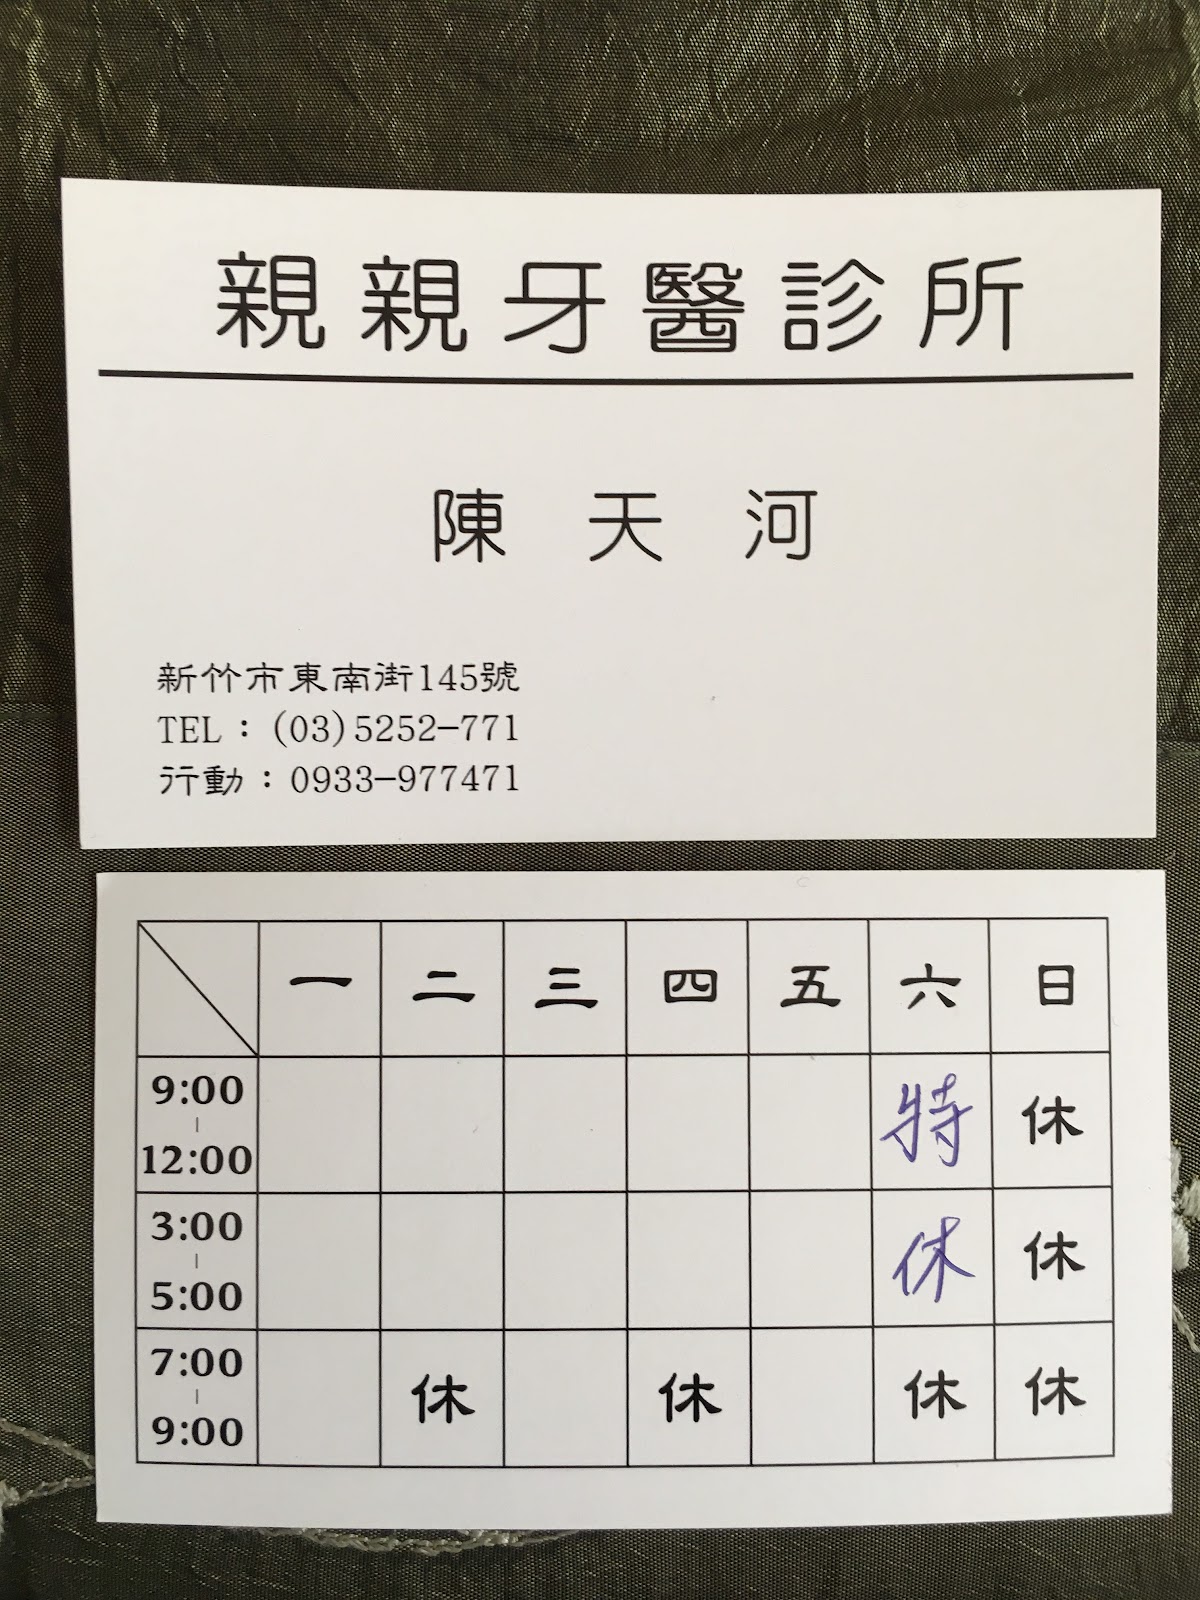 親親牙醫診所
陳天河
新竹市東南街145號
TEL：(03)5252-771
行動：0933-977471
一 二 三 四 五 六 日
9:00-12:00 特 休
3:00-5:00 休 休
7:00-9:00 休 休 休 休